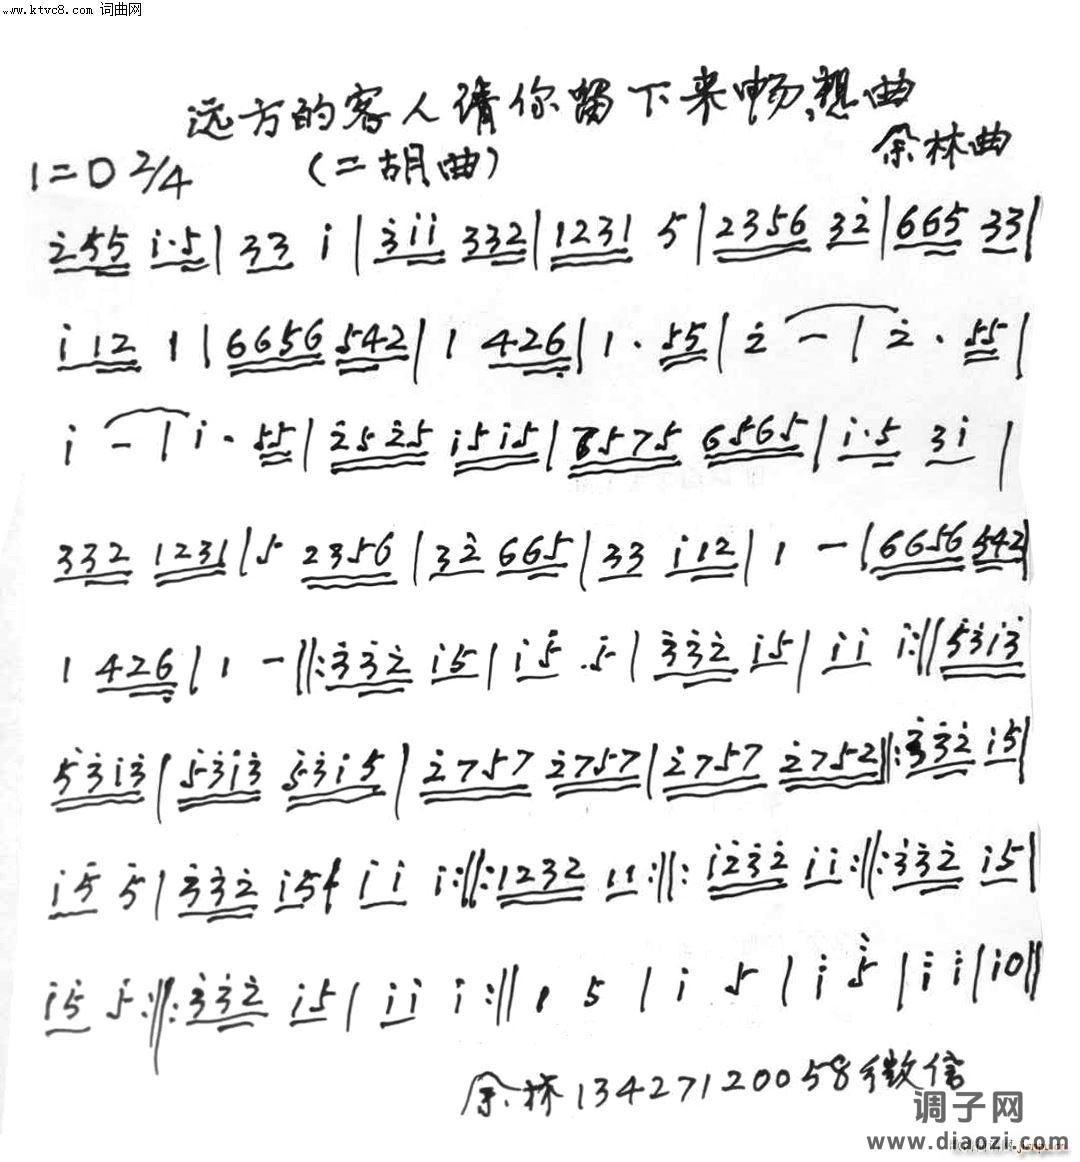 www.ktvc8.com 词曲网
远方的客人请你留下来畅想曲
1=D 2/4 (二胡曲) 余林曲
i̇255 i·5 | 33 i | 3ii 332 | 1231 5 | 2356 32 | 665 33 |
i12 1 | 6656 542 | 1 426 | 1· 55 | 2 — | 2· 55 |
i — | i· 55 | 2525 i5i5 | 7575 6565 | i·5 3i |
332 1231 | 5 2356 | 32 665 | 33 i12 | 1 — | 6656 542 |
1 426 | 1 — ‖: 332 i5 | i5 5 | 332 i5 | ii i :‖ 53i3
53i3 | 53i3 53i5 | 2757 2757 | 2757 2752 ‖: 332 i5 |
i5 5 | 332 i5 | ii i :‖: 1232 11 :‖: i232 ii :‖: 332 i5 |
i5 5 :‖: 332 i5 | ii i :‖ 1 5 | i 5 | i 5 | i i | i0 ‖
余林13427120058微信
调子网
www.diaozi.com